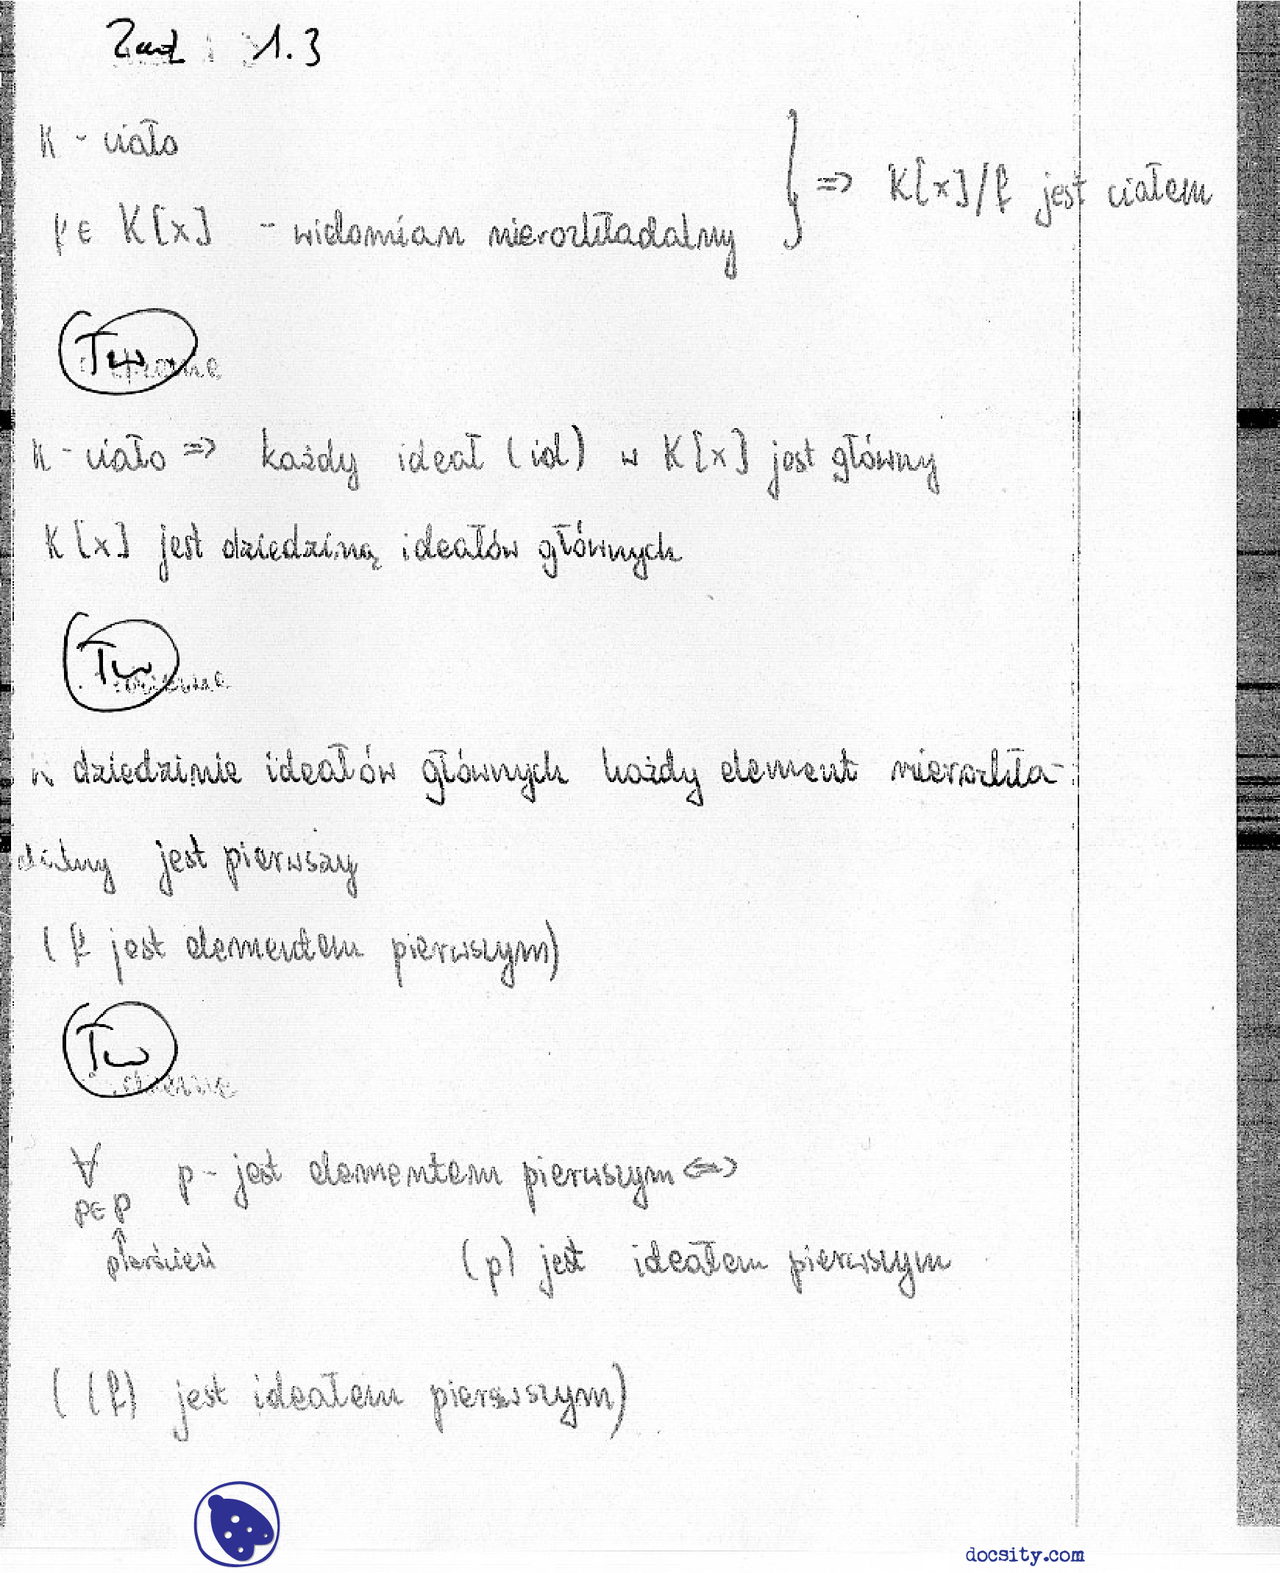 Zad 1.3
K - ciało
f ∈ K[x] - wielomian nierozkładalny } => K[x]/f jest ciałem
Tw.
K - ciało => każdy ideał (id) w K[x] jest główny
K[x] jest dziedziną ideałów głównych
Tw
w dziedzinie ideałów głównych każdy element nierozkła-
dalny jest pierwszy
(f jest elementem pierwszym)
Tw
∀ p - jest elementem pierwszym <=>
p∈P
↑
pierścień (p) jest ideałem pierwszym
((f) jest ideałem pierwszym)
docsity.com